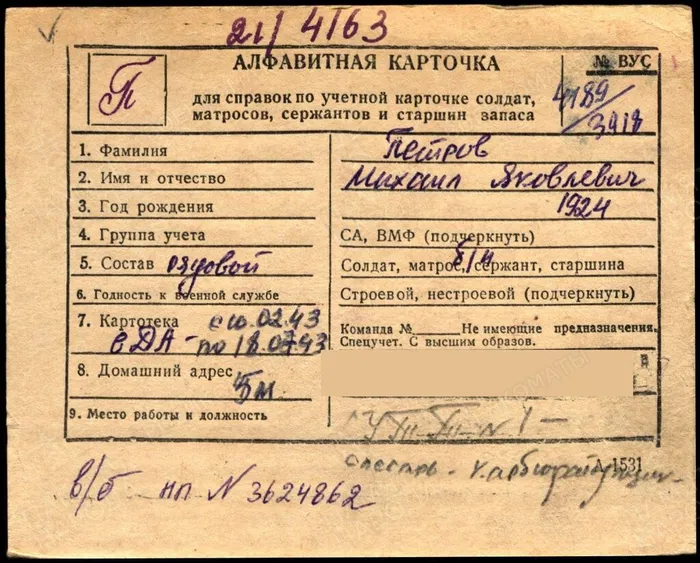 21/4163
АЛФАВИТНАЯ КАРТОЧКА
№ ВУС
П
для справок по учетной карточке солдат,
матросов, сержантов и старшин запаса
4189/3918
1. Фамилия Петров
2. Имя и отчество Михаил Яковлевич
3. Год рождения 1924
4. Группа учета СА, ВМФ (подчеркнуть)
5. Состав рядовой Солдат, матрос, сержант, старшина
б/н
6. Годность к военной службе Строевой, нестроевой (подчеркнуть)
7. Картотека с 10.02.43 Команда № Не имеющие предназначения.
в ДА - по 18.07.43 Спецучет. С высшим образов.
8. Домашний адрес
9. Место работы и должность
слесарь -
А-1531
в/б нп N 3624862